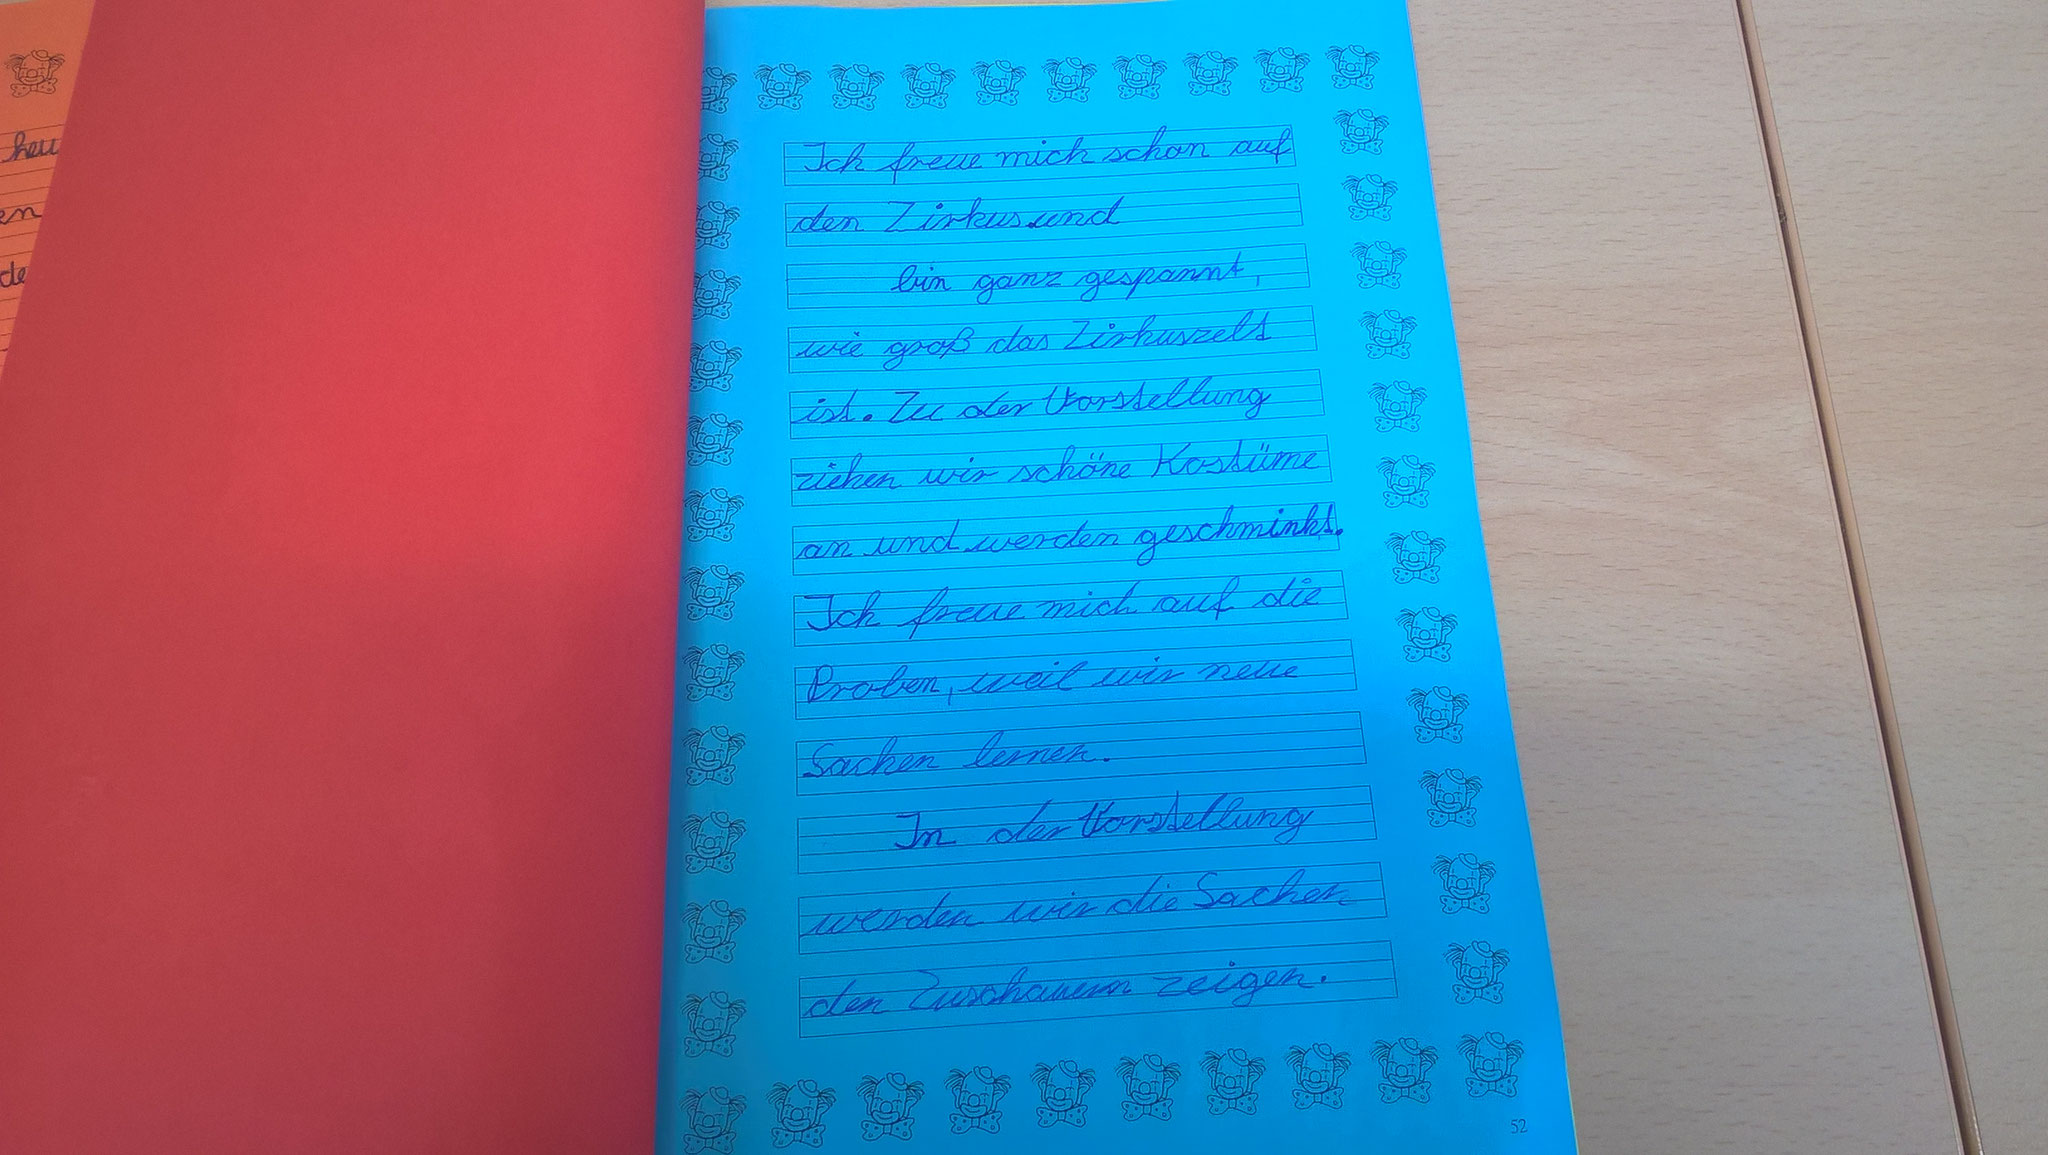 heu
en
de
Ich freue mich schon auf
den Zirkus und
bin ganz gespannt,
wie groß das Zirkuszelt
ist. Zu der Vorstellung
ziehen wir schöne Kostüme
an und werden geschminkt.
Ich freue mich auf die
Proben, weil wir neue
Sachen lernen.
In der Vorstellung
werden wir die Sachen
den Zuschauern zeigen.
52